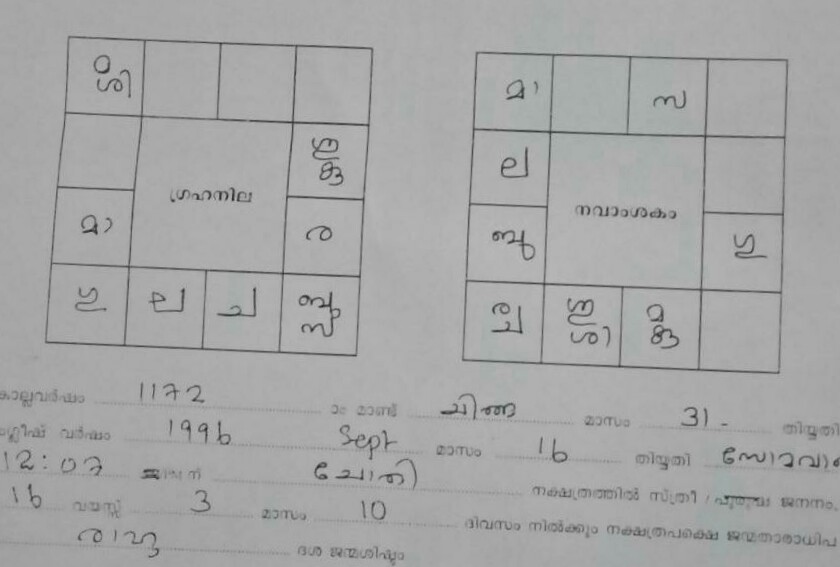 ശി
മാ സ
ഇ
കു
ല
ഗ്രഹനില
നവാംശകം
മാ ര
ബു ഗു
ഗു ല ച ബു
സ
ച ര ഇ
ശി മ
കു
കൊല്ലവർഷം 1172 ാം മാണ്ട് ചിങ്ങ മാസം 31 - തിയ്യതി
വർഷം 1996 Sept മാസം 16 തിയ്യതി സോമവാര
12:07 ന് ചോതി നക്ഷത്രത്തിൽ സ്ത്രീ / പുരുഷ ജനനം.
16 വയസ്സ് 3 മാസം 10 ദിവസം നിൽക്കും നക്ഷത്രപക്ഷെ ജന്മതാരാധിപ
രാഹു ദശ ജന്മശിഷ്ടം